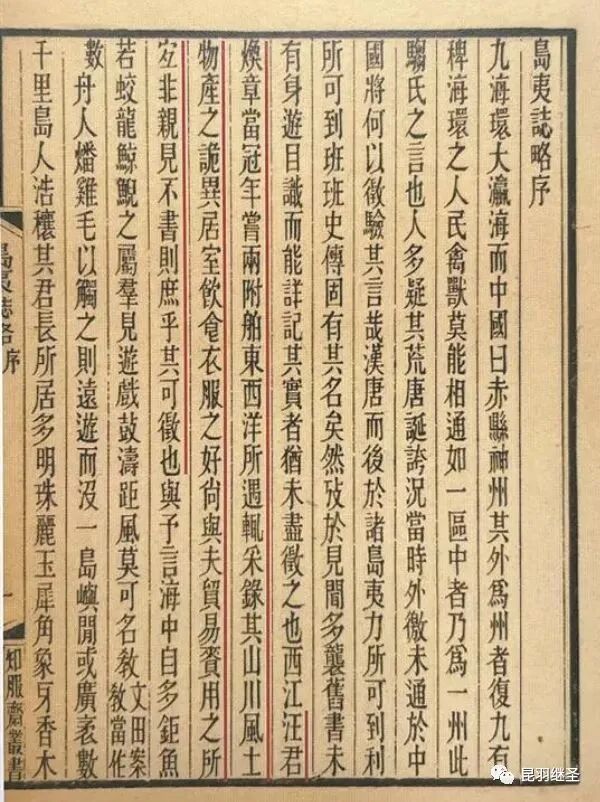 島夷誌略序
九海環大瀛海而中國曰赤縣神州其外爲州者復九有
裨海環之人民禽獸莫能相通如一區中者乃爲一州此
騶氏之言也人多疑其荒唐誕誇況當時外徼未通於中
國將何以徵驗其言哉漢唐而後於諸島夷力所可到利
所可到班班史傳固有其名矣然攷於見聞多襲舊書未
有身遊目識而能詳記其實者猶未盡徵之也西江汪君
煥章當冠年嘗兩附舶東西洋所遇輒采錄其山川風土
物產之詭異居室飲食衣服之好尚與夫貿易賫用之所
宜非親見不書則庶乎其可徵也與予言海中自多鉅魚
若蛟龍鯨鯢之屬羣見遊戲鼓濤距風莫可名教文田案教當作
數舟人燔雞毛以觸之則遠遊而沒一島嶼閒或廣袤數
千里島人浩穰其君長所居多明珠麗玉犀角象牙香木
島夷誌略 序
一
知服齋叢書
昆羽继圣